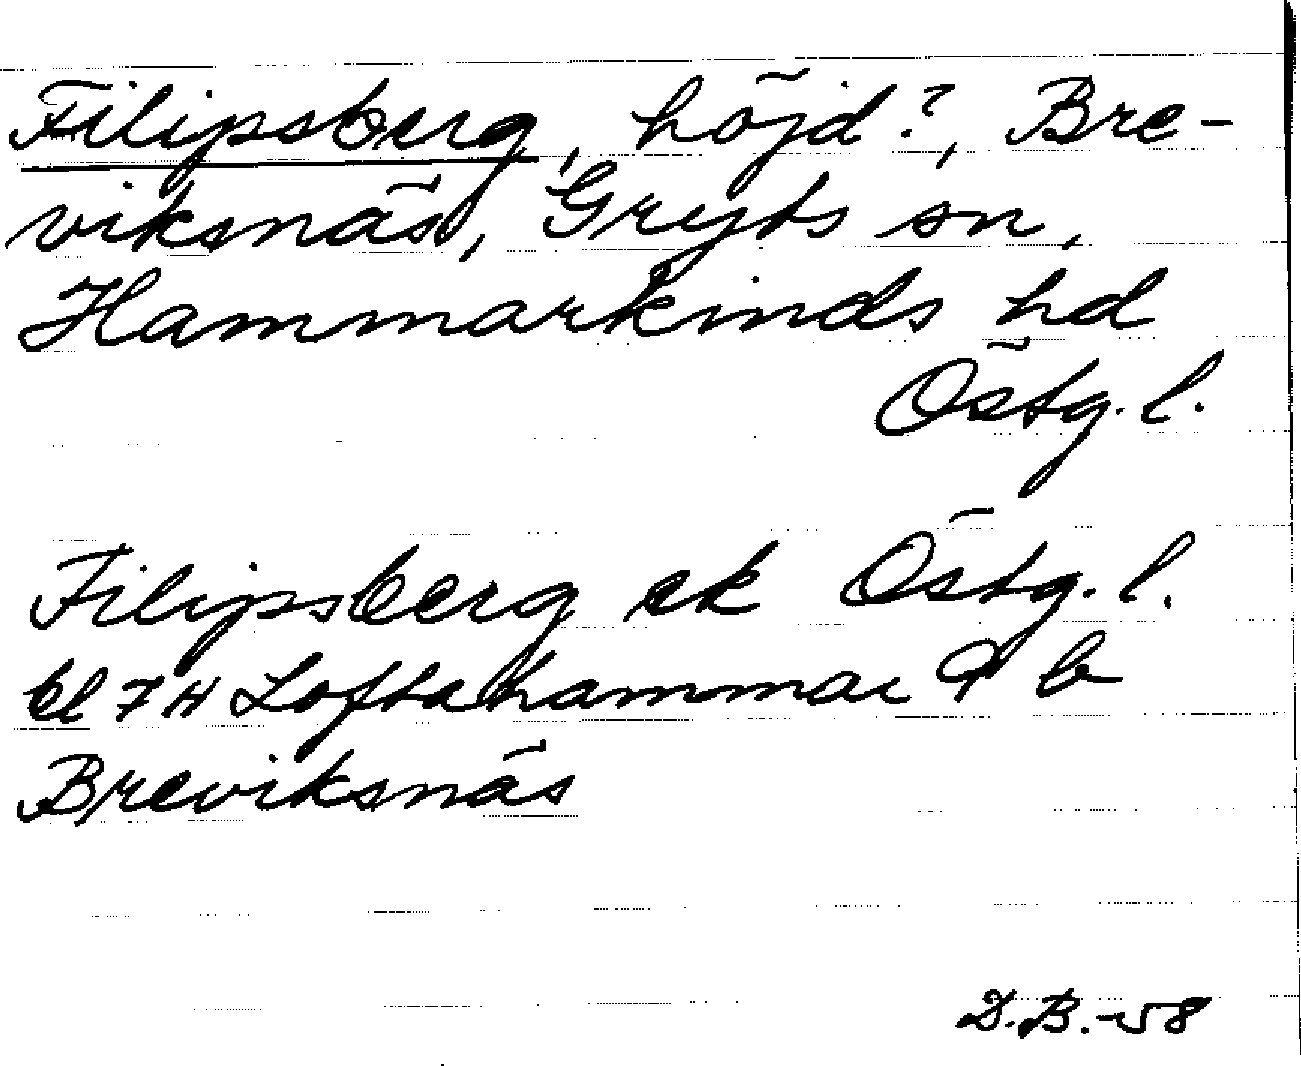 Filipsberg, höjd?, Bre-
viksnäs, Gryts sn,
Hammarkinds hd
Östg. l.
Filipsberg ek Östg. l.
bl 7H Loftahammar 9 b
Breviksnäs
D.B.-58